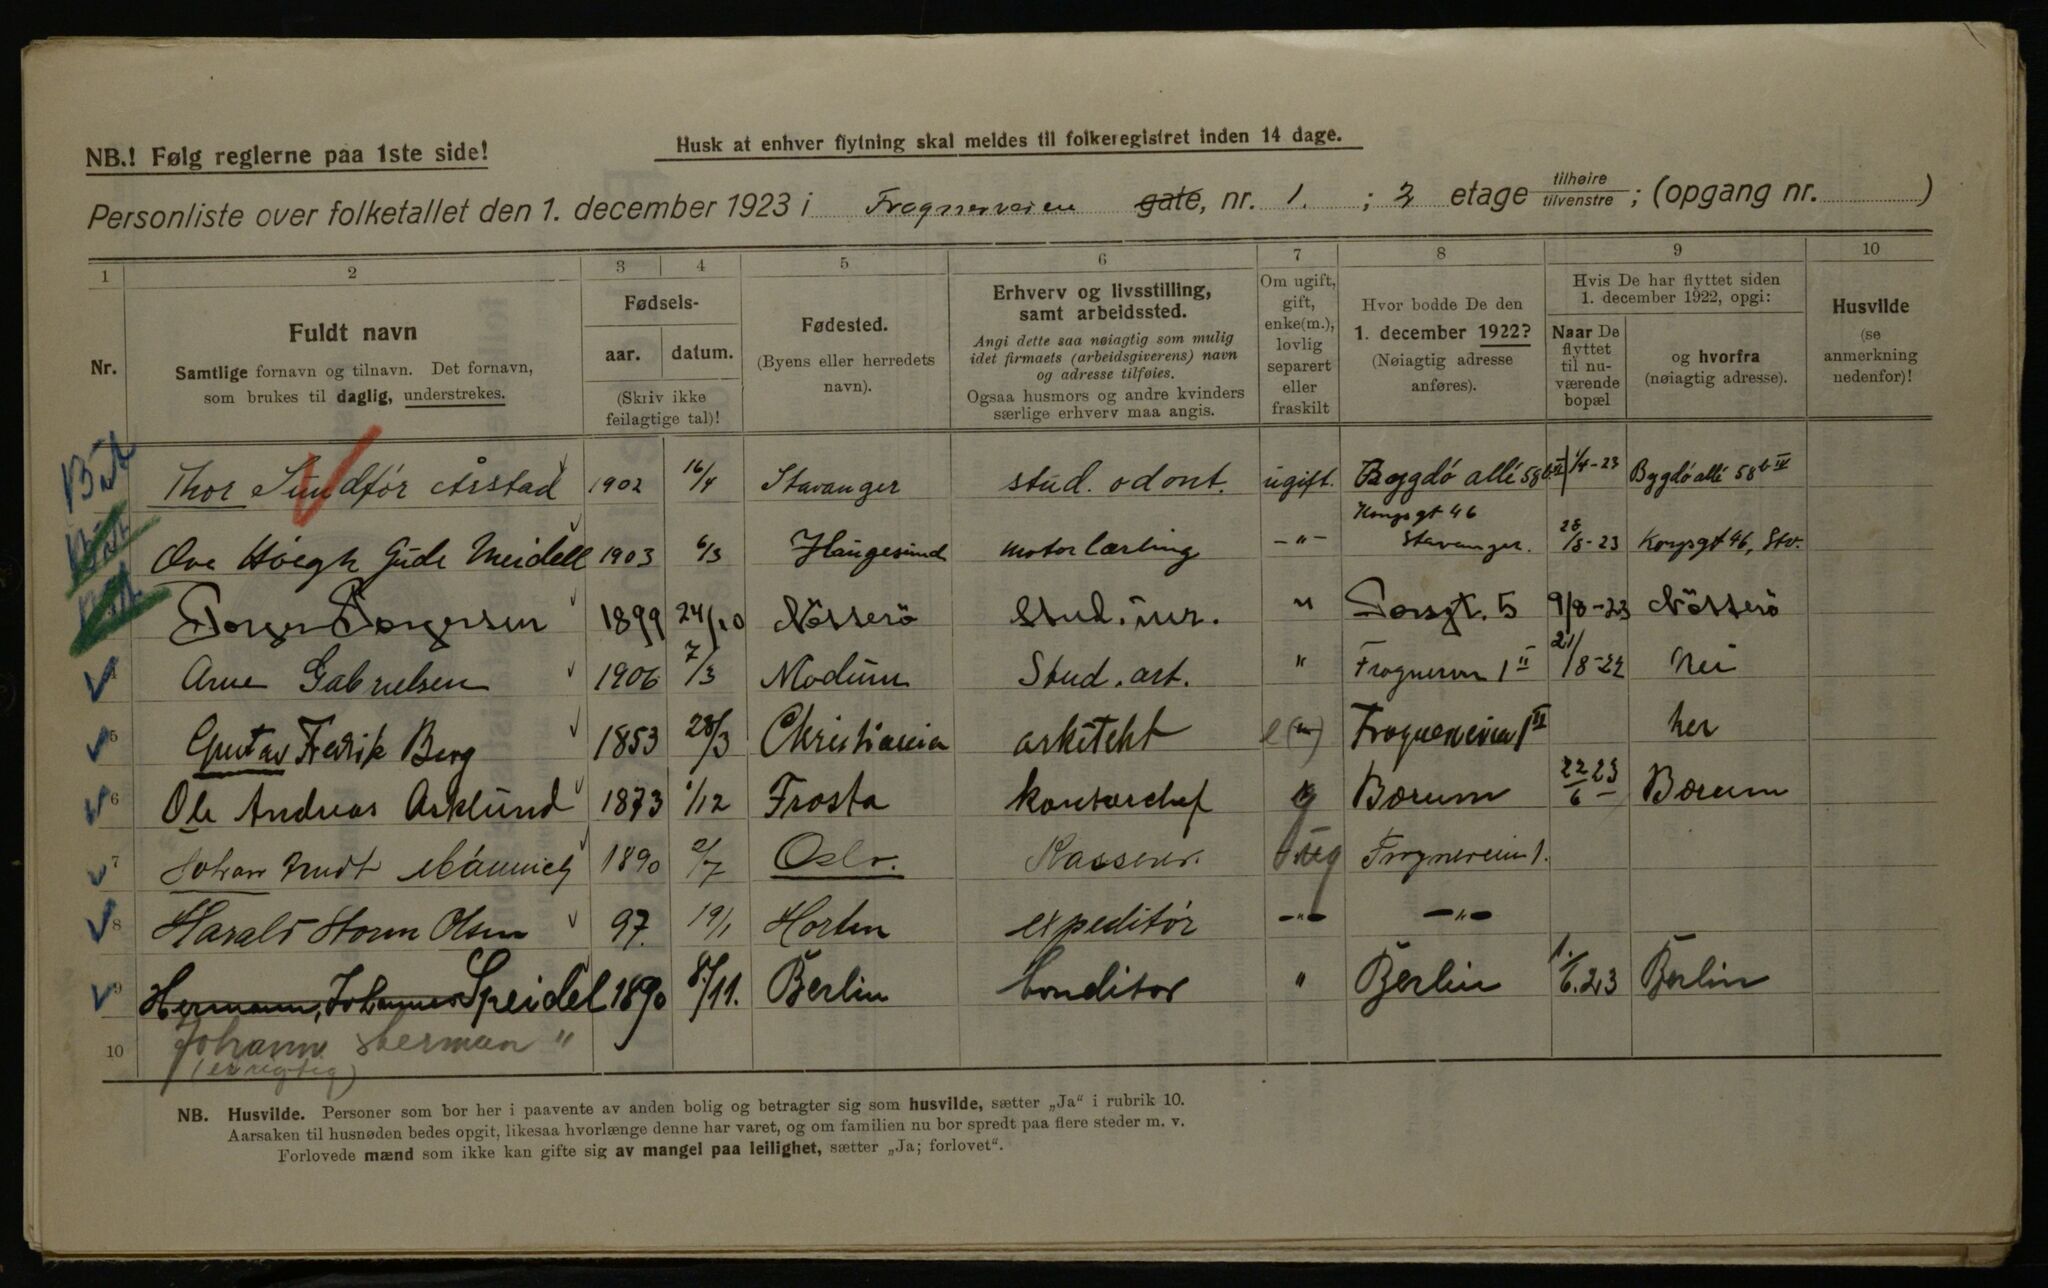 NB.! Følg reglerne paa 1ste side!
Husk at enhver flytning skal meldes til folkeregistret inden 14 dage.
Personliste over folketallet den 1. december 1923 i Frognerveien gate, nr. 1. ; 2 etage tilhøire tilvenstre ; (opgang nr. )
1 2 3 4 5 6 7 8 9 10
Nr.
Fuldt navn
Samtlige fornavn og tilnavn. Det fornavn,
som brukes til daglig, understrekes.
Fødsels-
aar. datum.
(Skriv ikke
feilagtige tal)!
Fødested.
(Byens eller herredets
navn).
Erhverv og livsstilling,
samt arbeidssted.
Angi dette saa nøiagtig som mulig
idet firmaets (arbeidsgiverens) navn
og adresse tilføies.
Ogsaa husmors og andre kvinders
særlige erhverv maa angis.
Om ugift,
gift,
enke(m.),
lovlig
separert
eller
fraskilt
Hvor bodde De den
1. december 1922?
(Nøiagtig adresse
anføres).
Hvis De har flyttet siden
1. december 1922, opgi:
Naar De
flyttet
til nu-
værende
bopæl
og hvorfra
(nøiagtig adresse).
Husvilde
(se
anmerkning
nedenfor)!
Thor Sundfør Årstad 1902 16/4 Stavanger stud. odont. ugift. Bygdø allé 58b IV 1/4-23 Bygdø allé 58b IV
Ove Høegh Gude Meidell 1903 6/3 Haugesund motorlærling -"- Kongsgt 46 Stavanger. 28/8-23 Kongsgt 46, Stv.
Torger Torgersen 1899 24/10 Nøtterö Stud. jur. " 5 9/8-23 Nøtterö
4 Arne Gabrielsen 1906 7/3 Modum Stud. art. " Frognervn 1 II 21/8-22 Nei
5 Gustav Fredrik Berg 1853 28/3 Christiania arkitekt e(m) Frognerveien 1 II her
6 Ole Andreas Asklund 1873 1/12 Frosta kontorchef g Bærum 22/6 23 Bærum
7 Johan Arndt 1890 2/7 Oslo. Kasserer. ug Frognerveien 1.
8 Harald Storm Olsen 97. 19/1 Horten expeditör -"- -"-
9 Hermann, Johannes Speidel 1890 8/11. Berlin Conditor " Berlin 1/6.23 Berlin
10 Johann Herman "
(er rigtig)
NB. Husvilde. Personer som bor her i paavente av anden bolig og betragter sig som husvilde, sætter „Ja“ i rubrik 10.
Aarsaken til husnøden bedes opgit, likesaa hvorlænge denne har varet, og om familien nu bor spredt paa flere steder m. v.
Forlovede mænd som ikke kan gifte sig av mangel paa leilighet, sætter „Ja; forlovet“.